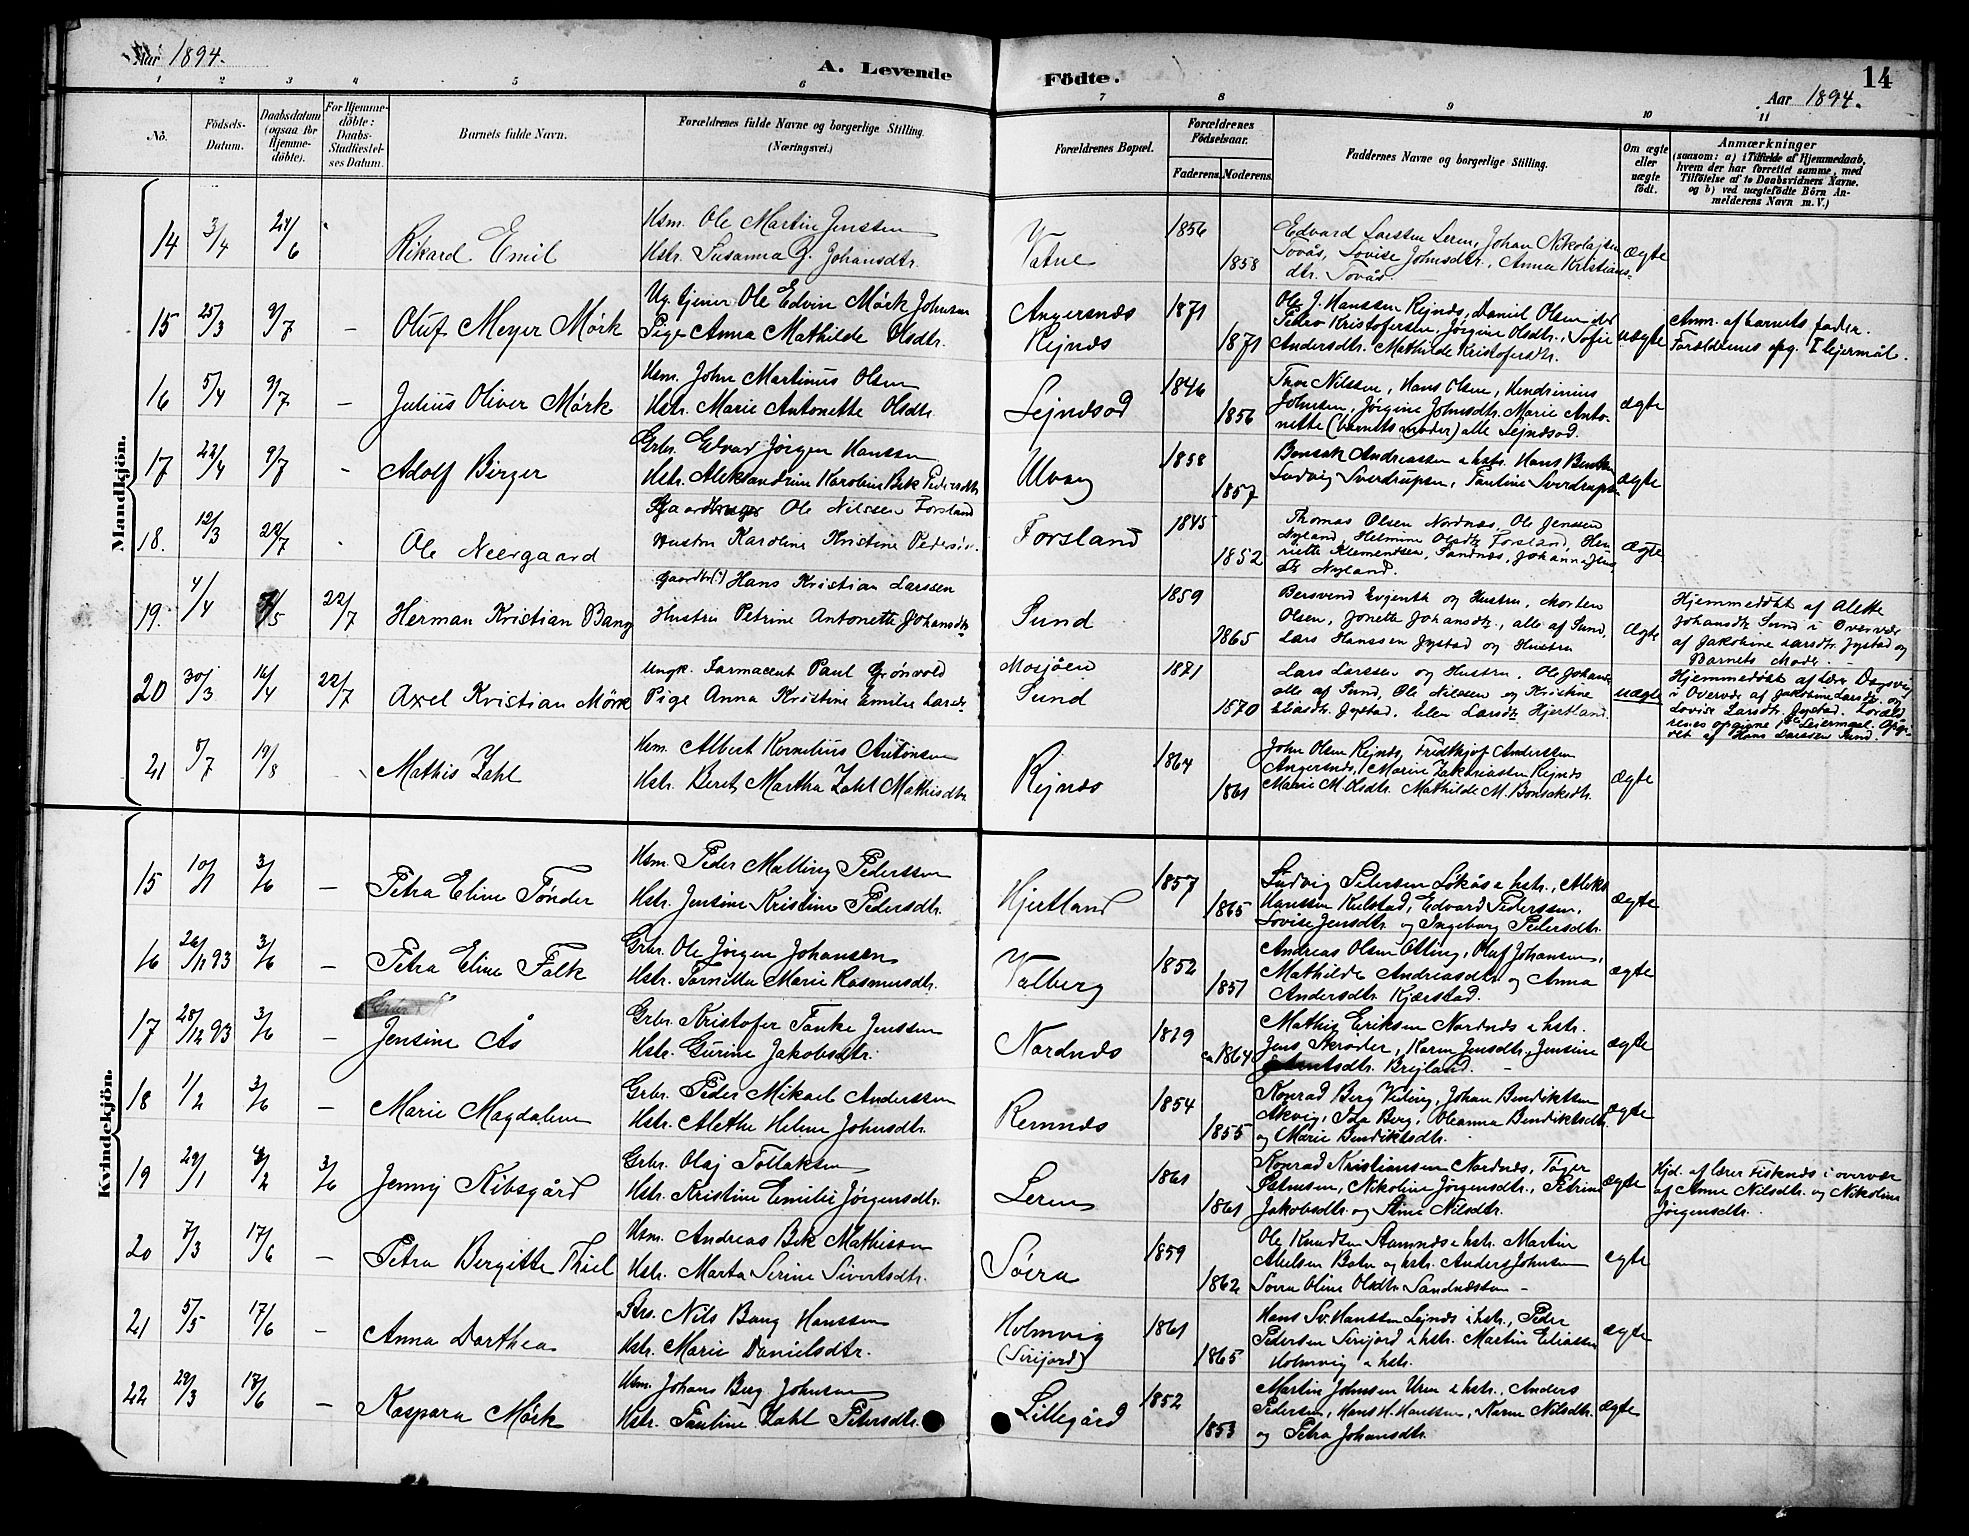 Aar 1894.
A. Levende Födte.
14
Aar 1894.
1 2 3 4 5 6 7 8 9 10 11
No.
Födsels-
Datum.
Daabsdatum
(ogsaa for
Hjemme-
döbte).
For Hjemme-
döbte:
Daabs-
Stadfæstel-
ses Datum.
Barnets fulde Navn.
Forældrenes fulde Navne og borgerlige Stilling.
(Næringsvei.)
Forældrenes Bopæl.
Forældrenes
Födselsaar.
Faderens. Moderens.
Faddernes Navne og borgerlige Stilling.
Om ægte
eller
uægte
födt.
Anmærkninger
(saasom: a) i Tilfælde af Hjemmedaab,
hvem der har forrettet samme, med
Tilföielse af to Daabsvidners Navne.
og b) ved uægtefödte Börn An-
melderens Navn m. V.)
Mandkjön.
14 3/4 24/6 Rikard Emil
Hsm. Ole Martin Jenssen
Hstr. Susanna J. Johansdtr.
Vatne 1856 1858
Edvard Larssen Leren, Johan Nikolajsen
Tovås, Lovise Johnsdtr., Anna Kristians-
dtr. Tovås.
ægte
15 25/3 9/7 – Oluf Meyer Mörk
Ug. tjener Ole Edvin Mörk Johnsen
Pige Anna Mathilde Olsdtr.
Angersnæs
Rejnæs
1871 1871
Ole J. Hanssen Rejnæs, Daniel Olsen ibd
Petro Kristofersen, Jörgine Olsdtr., Sofie
Andersdtr. Mathilde Kristofersdtr.
uægte
Anm. af barnets fader.
Forældrenes opg. 1 lejermål.
16 5/4 9/7 – Julius Oliver Mörk
Hsm. John Martinus Olsen
Hstr. Marie Antonette Olsdtr.
Lejndsod 1846 1856
Thor Nilssen, Hans Olsen, Hendrinius
Johnsen, Jörgine Johnsdtr. Marie Anto-
nette (barnets moder) alle Lejndsod.
ægte
17 22/4 9/7 - Adolf Birger
Grbr. Edvar Jörgen Hanssen
Hstr. Aleksandrine Karoline Bek Pedersdtr.
Ulvang 1858 1857
Bonsak Andreassen & hstr. Hans
Ludvig Sverdrupsen, Pauline Sverdrups
ægte
18. 12/3 22/7 Ole Neergaard
Gaardbruger Ole Nilssen Forsland
Hustru Karoline Kristine Pedersdr.
Forsland 1845 1852
Thomas Olsen Nordnæs, Ole Jenssen
Nyland, Helmine Olsdtr Forsland, Hen-
riette Klementsen, Sandnæs, Johanna
Nyland.
ægte
19. 4/4 /5 22/7 Herman Kristian Bang
Gaardbr. Hans Kristian Larssen
Hustru Petrine Antonette Johansdtr.
Sund 1859 1865
Bersvend Evjenth og Hustru, Morten
Olsen, Jonette Johansdtr., alle af Sund,
Lars Hanssen Jystad og Hustru
Ægte
Hjemmedöbt af Alette
Johansdtr Sund i Overvær
af Jakobine Larsdtr Jystad og
Barnets Moder.
20 30/3 16/4 22/7 Axel Kristian Mörk
Ungk. Farmaceut Paul Grönvold
Pige Anna Kristine Emilie Larsdtr
Mosjöen
Sund
1871 1870
Lars Larssen og Hustru, Ole Johans
alle af Sund, Ole Nilssen og Kristine
Eliasdtr Jystad, Elen Larsdtr Hjertland.
uægte
Hjemmedöbt af Lær Dagsvig
i Overvær af Jakobine Larsdtr og
Lovise Larsdtr Jystad. Foræld-
renes opgivne 1ste Leiermaal. Opgi-
vet af Hans Larssen Sund.
21 5/7 19/8 Mathis Zahl
Hsm. Albert Kornelius Antonsen
Hstr. Beret Martha Zahl Mathisdtr.
Rejnæs 1864 1861
John Olsen Rejnæs, Fridthjof Anderssen
Angersnæs, Marine Zakariassen Rejnæs
Marie M. Olsdtr. Mathilde M. Bonsaksdtr.
ægte
Kvindekjön.
15 10/1 3/6 – Petra Eline Tönder
Hsm. Peder Malling Pederssen
Hstr. Jensine Kristine Pedersdtr.
Hjertland 1857 1865
Ludvig Petersen Lökås & hstr., Aleks
Hanssen Kulstad, Edvard Pederssen,
Lovise Jensdtr. og Ingeborg Pedersdtr.
ægte
16 26/11 93 3/6 – Petra Eline Falk
Grbr. Ole Jörgen Johansen
Hstr. Tomitta Marie Rasmusdtr.
Valberg 1852 1851
Andreas Olsen Otting, Oluf Johansen,
Mathilde Andreasdtr. og Anna
Andersdtr. Kjærstad.
ægte
17 28/12 93 3/6 – Jensine Ås
Grbr. Kristofer Tanke Jenssen
Hstr. Gurine Jakobsdtr.
Nordnæs 1829 ca 1864
Mathis Eriksen Nordnæs & hstr.
Jens Skröder, Karen Jensdtr., Jensine
Brejland.
ægte
18 1/2 3/6 – Marie Magdalene
Grbr. Peder Mikael Anderssen
Hstr. Alethe Helene Johnsdtr.
Remnæs 1854 1855
Konrad Berg Veting, Johan Bendiktsen
Akvig, Ida Berg, Oleanna Bendiktsdtr.
og Marie Bendiktsdtr.
ægte
19 29/1 /2 3/6 Jenny Ribsgård
Grbr. Olaj Tollaksen
Hstr. Kristine Emilie Jörgensdtr.
Leren 1861 1861
Konrad Kristiansen Nordnæs, Töger
Petersen, Nikoline Jörgensdtr., Petrine
Jakobsdtr. og Stine Nilsdtr.
ægte
Hjd. af lærer Fisknæs i overvær
af Anne Nilsdtr. og Nikoline
Jörgensdtr.
20 7/3 17/6 – Petra Bergitte Thiel
Hsm. Andreas Bek Mathissen
Hstr. Marta Serine Sivertsdtr.
Söera 1859 1862
Ole Knudsen Stamnæs & hstr. Martin
Abelsen Batn og hstr. Anders Johnsen
Sovra Oline Olsdtr. Sandnæssen –
ægte
21 5/5 17/6 – Anna Dorthea
Strs. Nils Bang Hanssen
Hstr. Marie Danielsdtr.
Holmvig
(Sirijord)
1861 1865
Hans Sv. Hanssen Lejnæs & hstr., Peder
Pedersen Sirijord & hstr. Martin Eliassen
Holmvig & hstr.
ægte
22 29/3 17/6 – Kaspara Mörk
Hsm. Johans Berg Johnsen
Hstr. Pauline Zahl Petersdtr.
Lillegård 1852 1853
Martin Johnsen Uren & hstr., Anders
Pedersen, Hans H. Hanssen, Karen Nilsdtr.
og Petra Johansdtr.
ægte